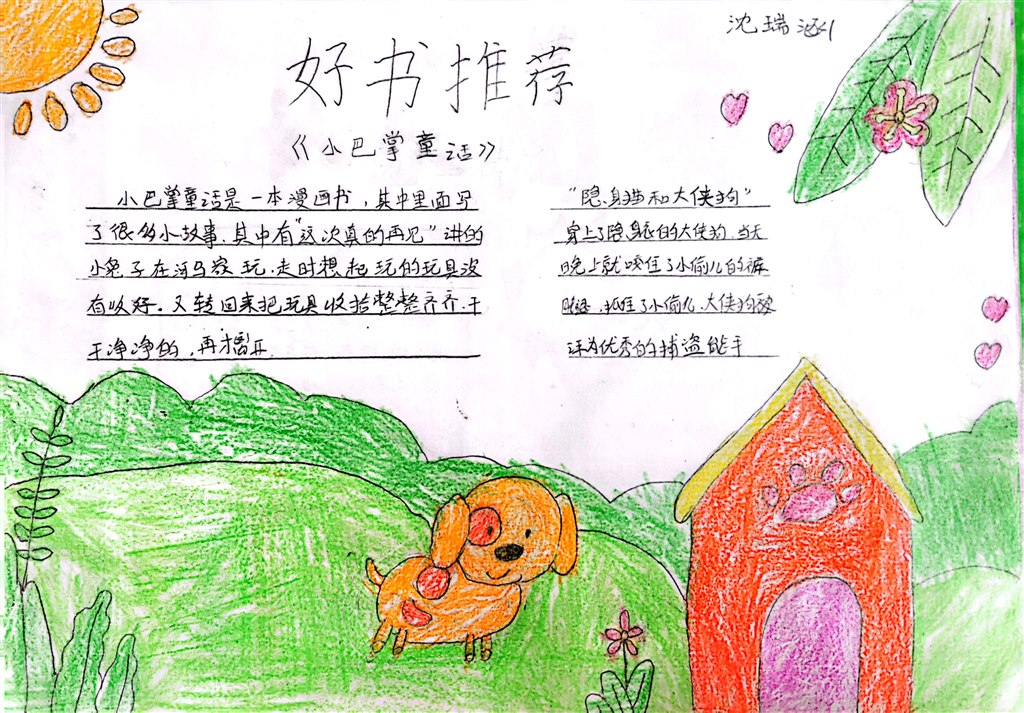 沈瑞涵
好书推荐
《小巴掌童话》
小巴掌童话是一本漫画书，其中里面写
了很多小故事，其中有"这次真的再见"讲的
小兔子在河马家玩，走时想起玩的玩具没
有收好。又转回来把玩具收拾整整齐齐，干
干净净的，再离开
"隐身猫和大侠狗"
穿上了隐身衣的大侠狗，当天
晚上就咬住了小偷儿的裤
腿，抓住了小偷儿，大侠狗被
评为优秀的捕盗能手